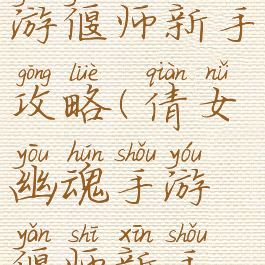 游偃师新手
gōng lüè qiàn nǚ
攻略(倩女
yōu hún shǒu yóu
幽魂手游
yǎn shī xīn shǒu
偃师新手